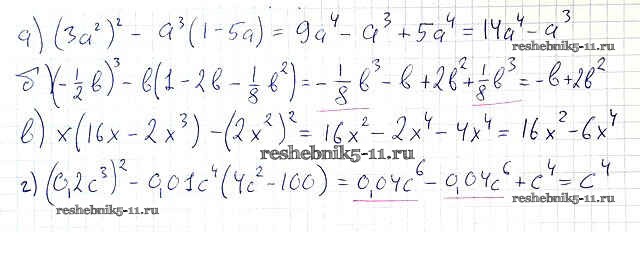 а) (3a²)² - a³(1-5a) = 9a⁴ - a³ + 5a⁴ = 14a⁴ - a³
reshebnik5-11.ru
б) (-1/2 b)³ - b(1 - 2b - 1/8 b²) = -1/8 b³ - b + 2b² + 1/8 b³ = -b + 2b²
reshebnik5-11.ru
в) x(16x - 2x³) - (2x²)² = 16x² - 2x⁴ - 4x⁴ = 16x² - 6x⁴
reshebnik5-11.ru
г) (0,2c³)² - 0,01c⁴(4c² - 100) = 0,04c⁶ - 0,04c⁶ + c⁴ = c⁴
reshebnik5-11.ru reshebnik5-11.ru